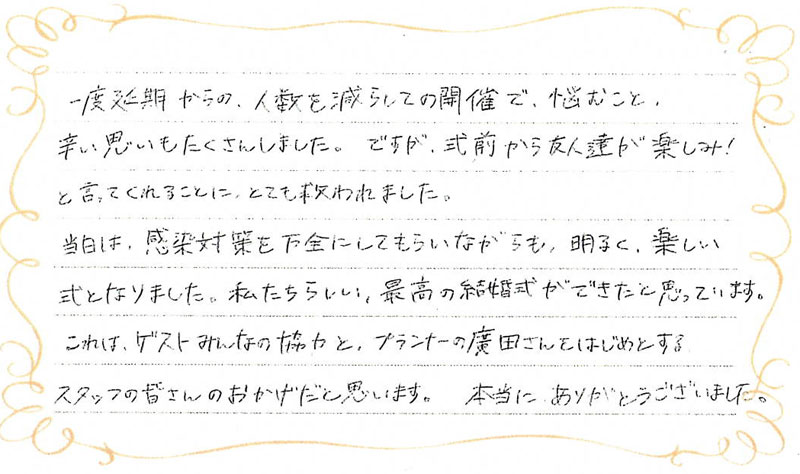 一度延期からの、人数を減らしての開催で、悩むこと、
辛い思いもたくさんしました。ですが、式前から友人達が楽しみ!
と言ってくれることに、とても救われました。
当日は、感染対策を万全にしてもらいながらも、明るく、楽しい
式となりました。私たちらしい、最高の結婚式ができたと思っています。
これは、ゲストみんなの協力と、プランナーの廣田さんをはじめとする
スタッフの皆さんのおかげだと思います。 本当にありがとうございました。